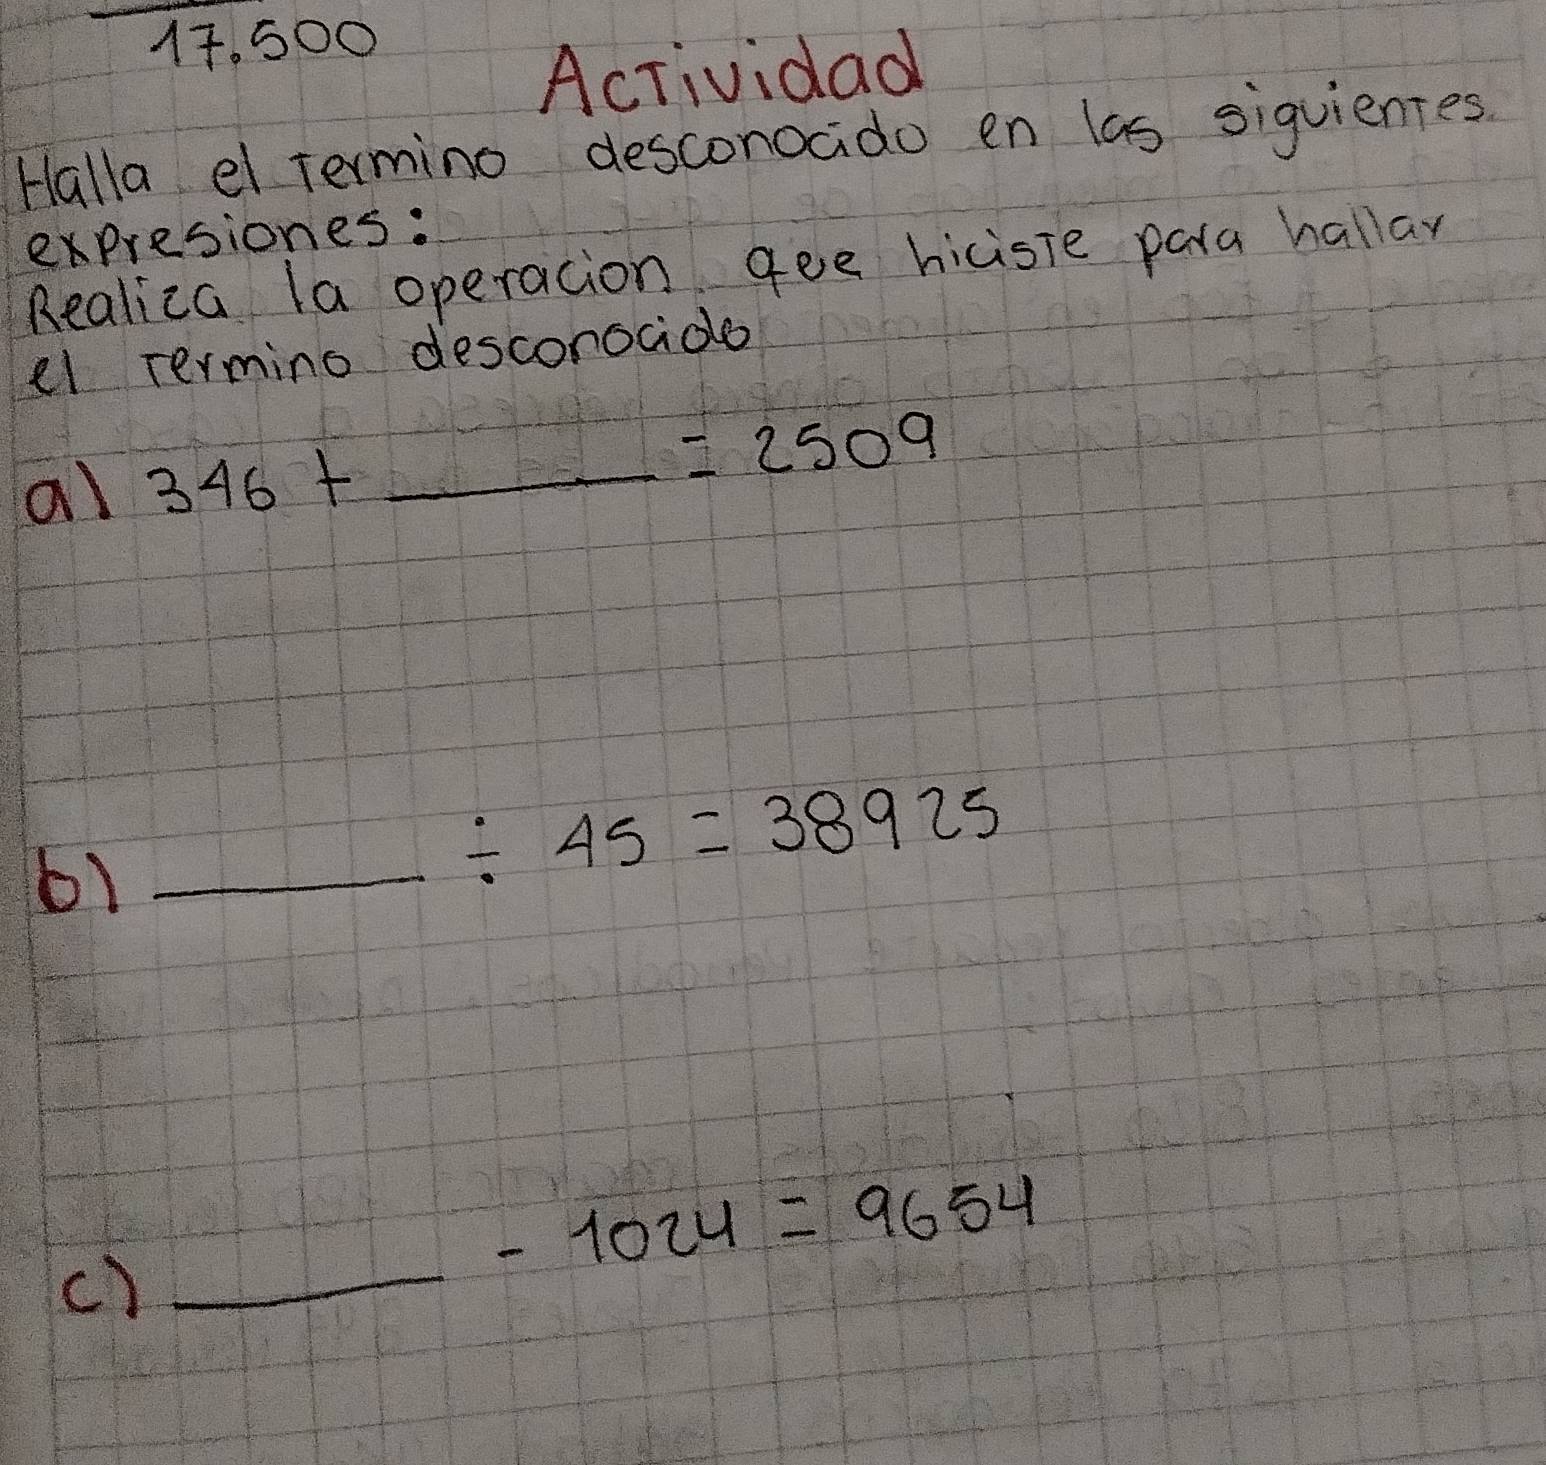 17.500
Actividad
Halla el termino desconocido en las siguientes
expresiones:
Realiza la operacion que hiciste para hallar
el termino desconocido
a) 346 + ______ = 2509
b) ______ ÷ 45 = 38925
c) ______ - 1024 = 9654